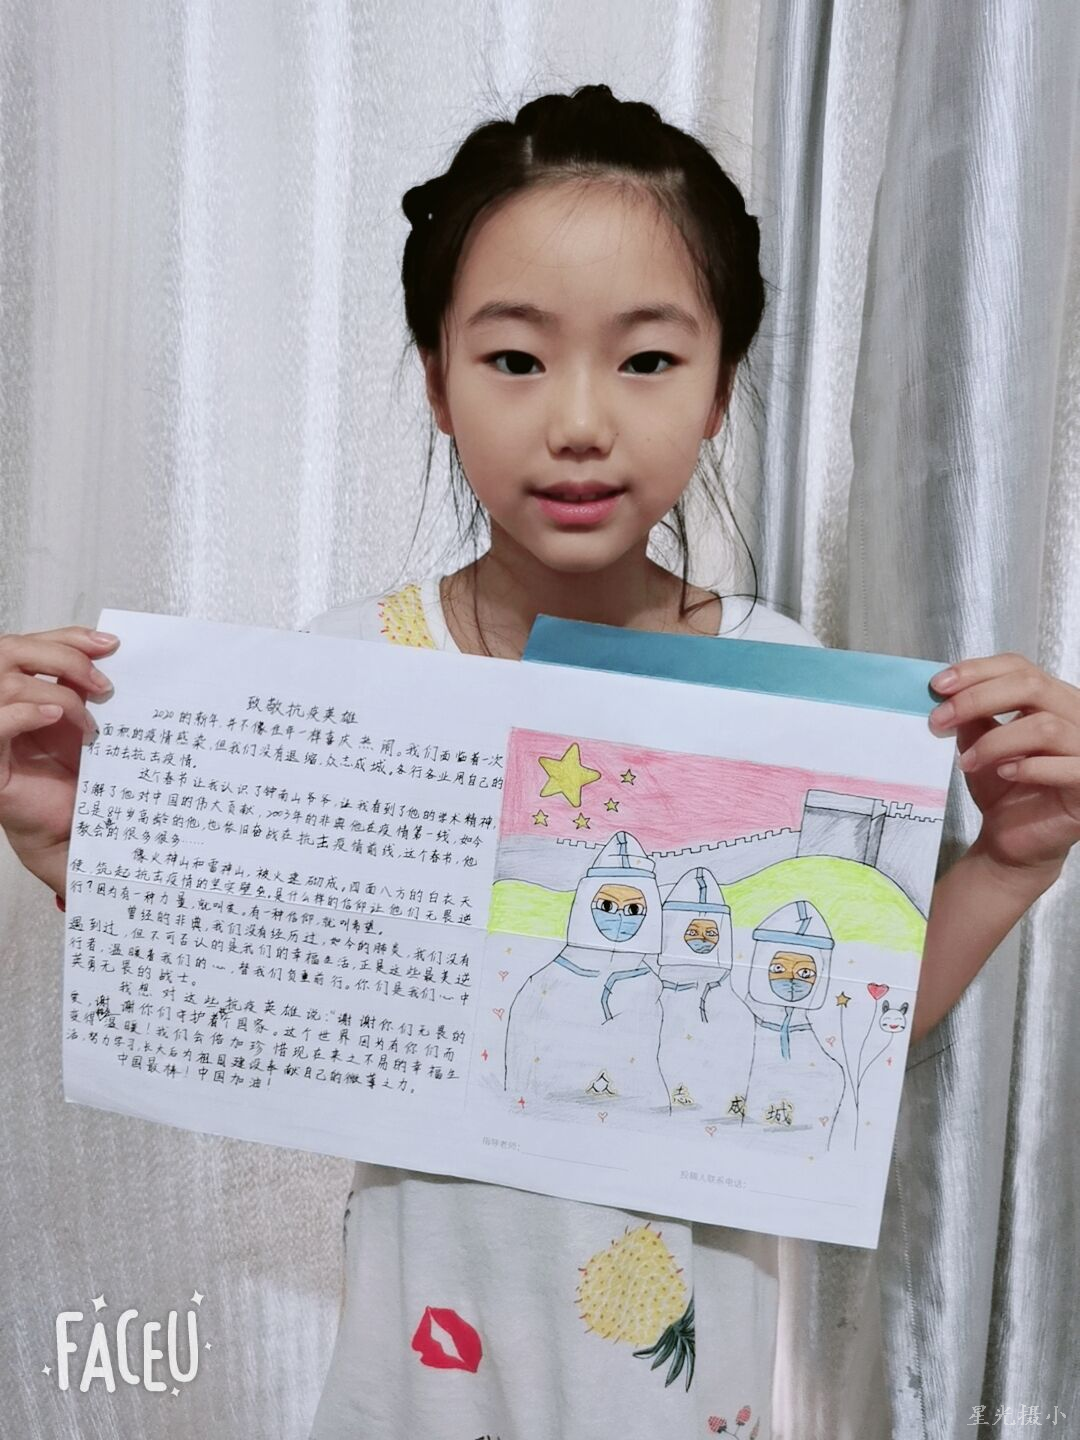 致敬抗疫英雄
2020的新年，并不像往年一样喜庆热闹。我们面临着一次
面积的疫情感染，但我们没有退缩，众志成城。各行各业用自己的
行动去抗击疫情。
这个春节让我认识了钟南山爷爷，让我看到了他的学术精神，
了解了他对中国的伟大贡献，2003年的非典他在疫情第一线，如今
已是84岁高龄的他，也依旧奋战在抗击疫情前线，这个春节，他
教会的很多很多……
像火神山和雷神山，被火速砌成。四面八方的白衣天
使，筑起抗击疫情的坚实壁垒，是什么样的信仰让他们无畏逆
行？因为有一种力量，就叫爱。有一种信仰，就叫希望。
曾经的非典，我们没有经历过，如今的肺炎，我们没有
遇到过，但不可否认的是我们的幸福生活，正是这些最美逆
行者，温暖着我们的心，替我们负重前行。你们是我们心中
英勇无畏的战士。
我想对这些抗疫英雄说：“谢谢你们无畏的
爱，谢谢你们守护着个国家。这个世界因为有你们而
变得温暖！我们会倍加珍惜现在来之不易的幸福生
活，努力学习，长大后为祖国建设奉献自己的微薄之力。
中国最棒！中国加油！
众志成城
指导老师：
投稿人联系电话：
FACEU
星光摄小